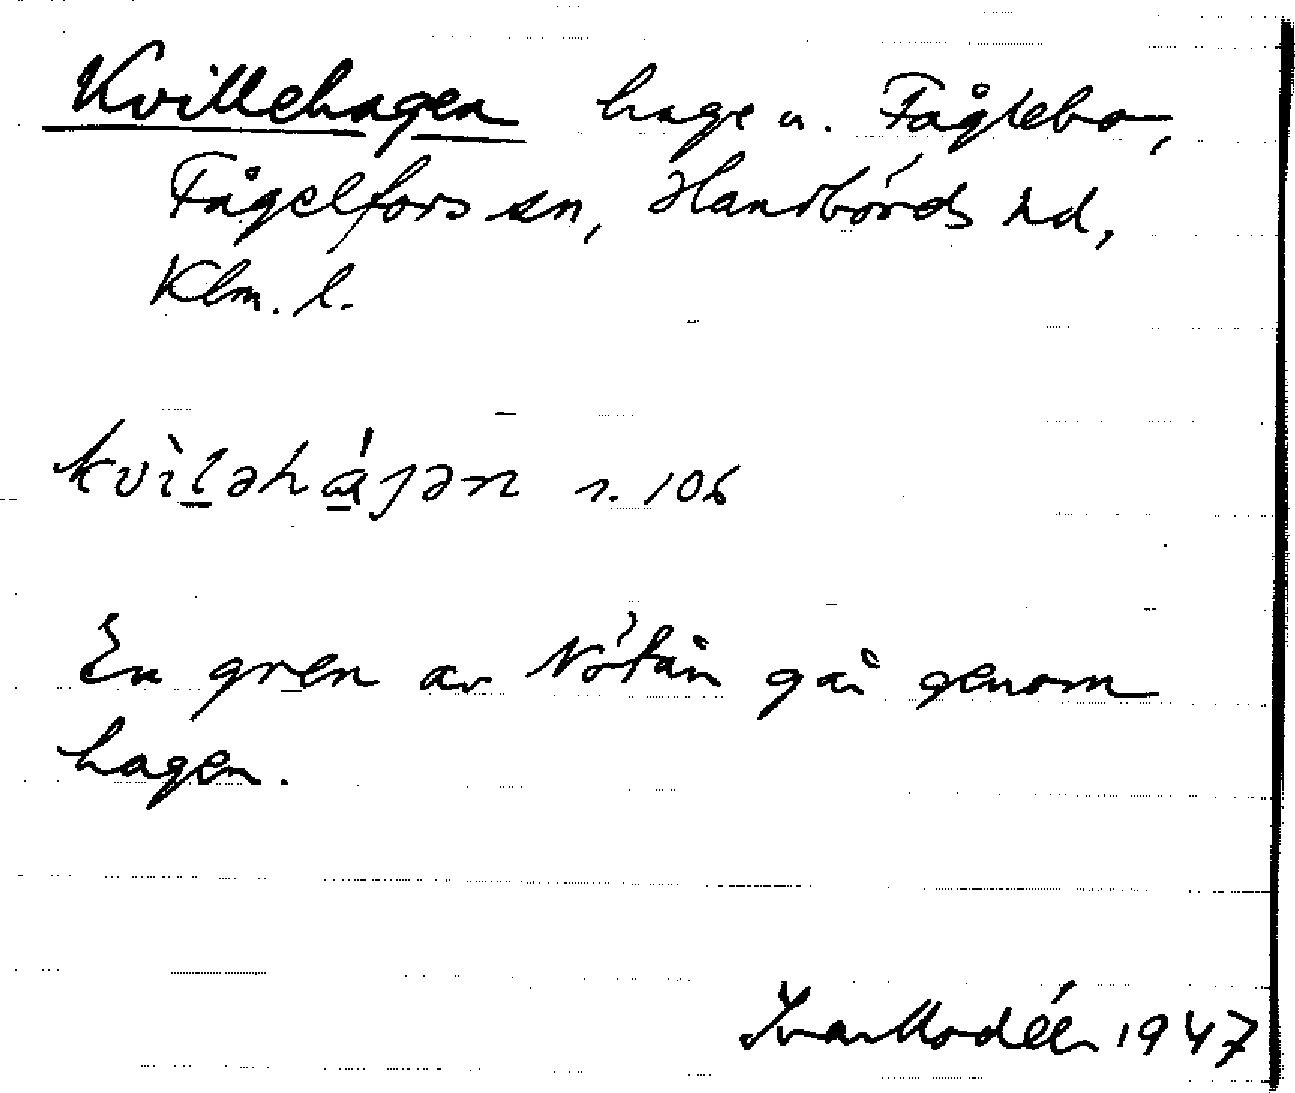 Kvillehagen hage u. Fåglebo,
Fågelfors sn, Handbörds hd,
Klm. l.
kvìlǝhágǝn r. 106
En gren av Nötån gå genom
hagen.
Ivar Modéer 1947